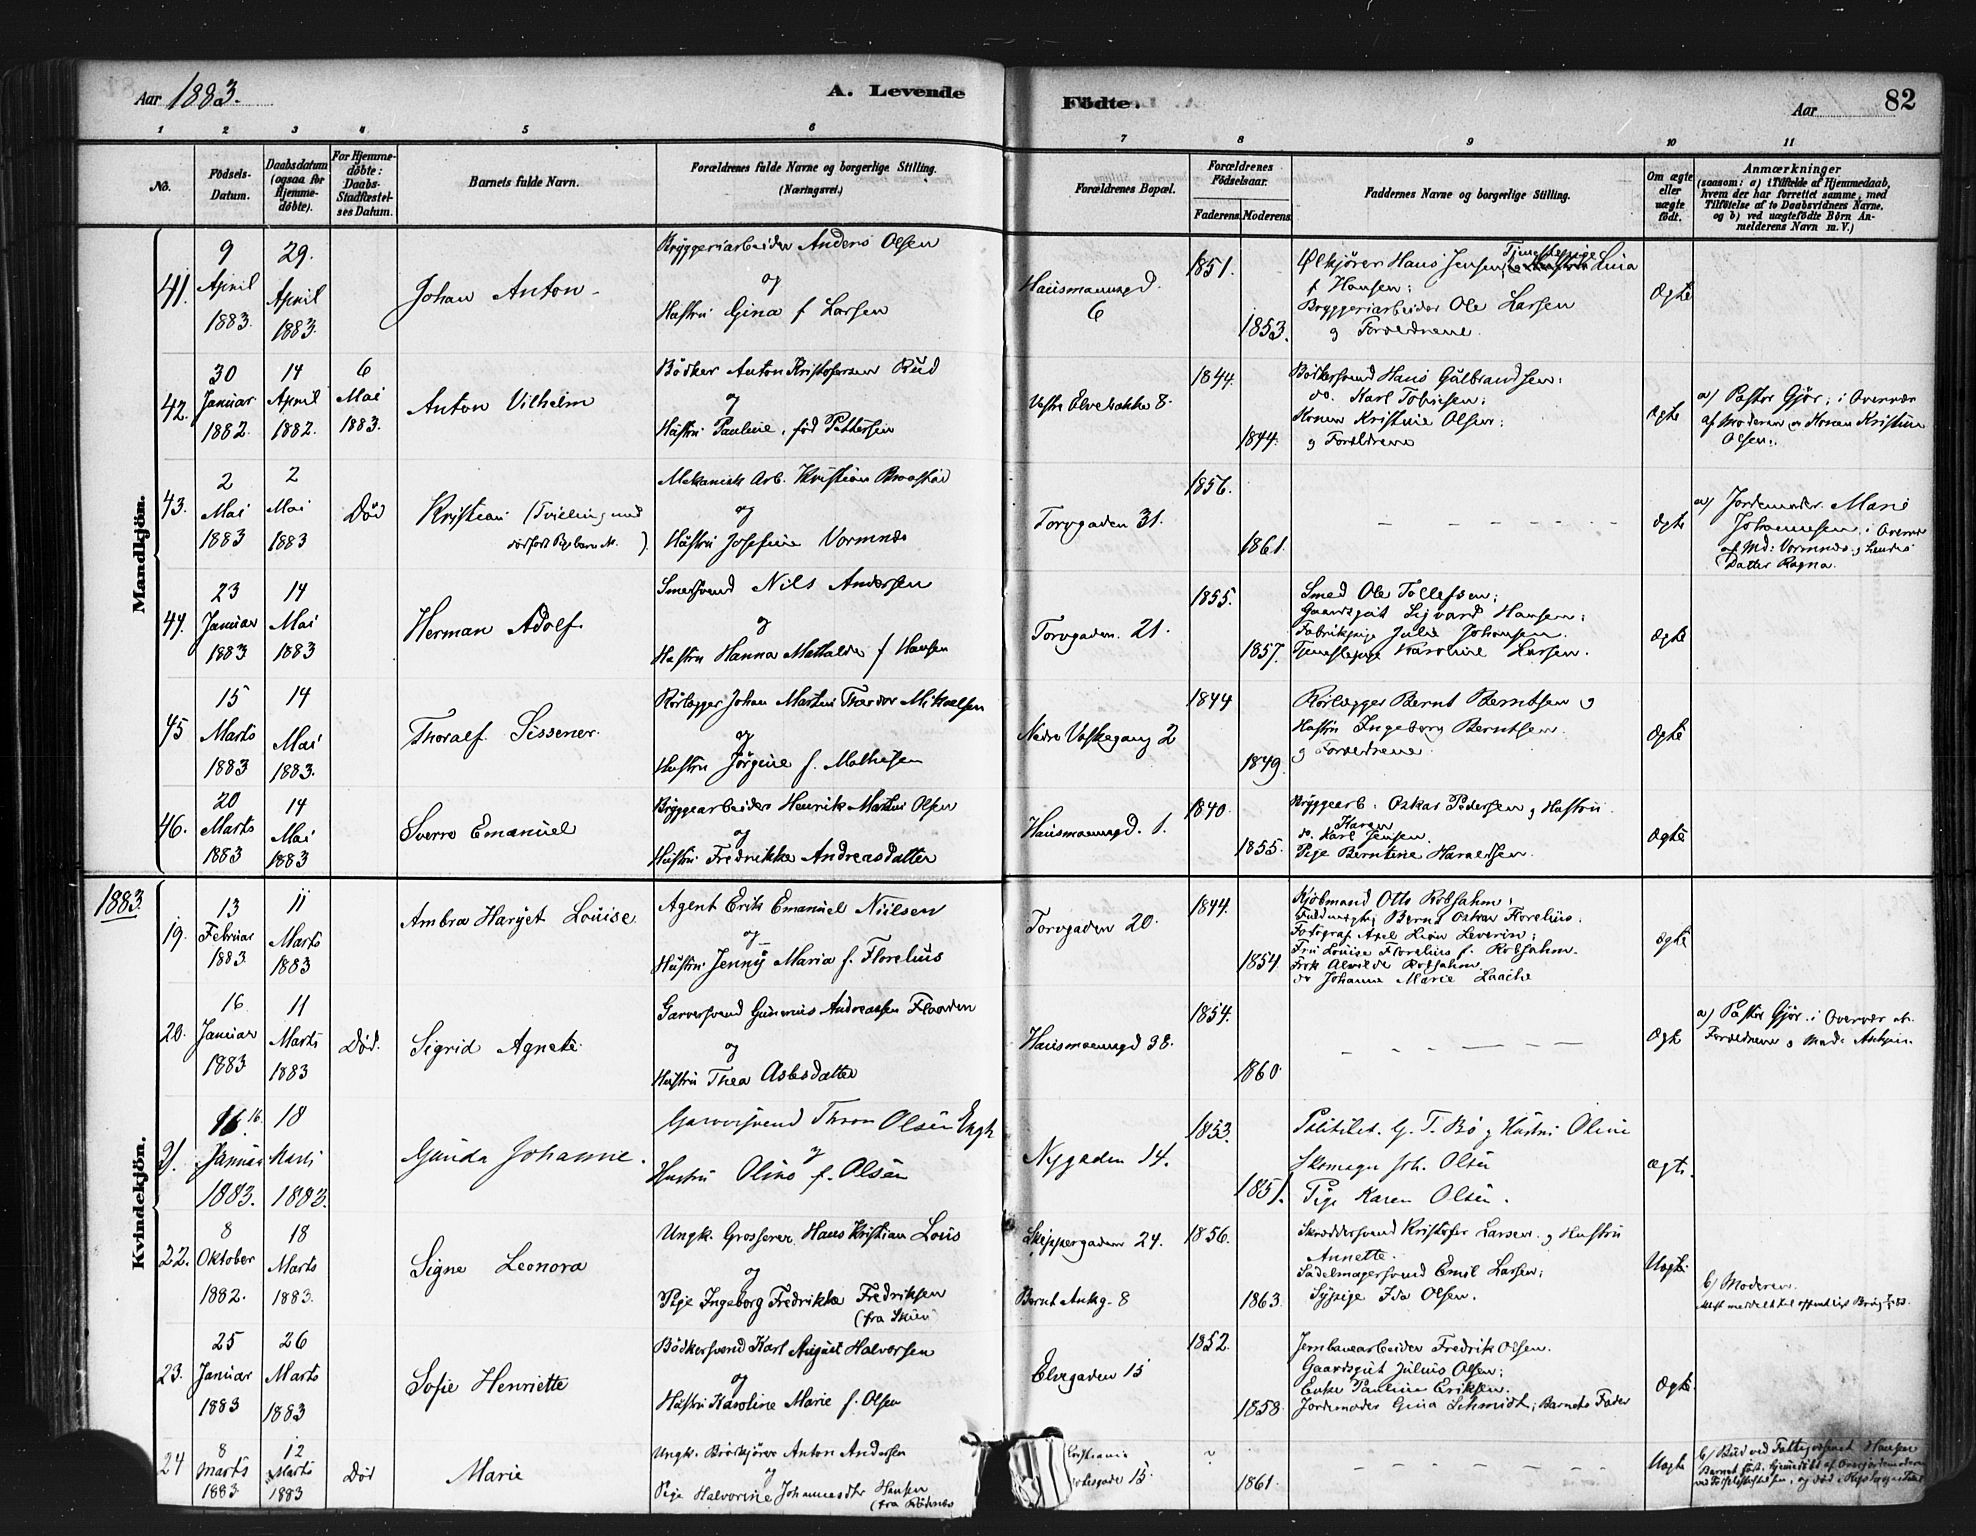 Aar 1883.
A. Levende
Födte.
Aar
82
1 2 3 4 5 6 7 8 9 10 11
No.
Födsels-Datum.
Daabsdatum (ogsaa for Hjemme-döbte).
For Hjemme-döbte: Daabs-Stadfæstel-ses Datum.
Barnets fulde Navn.
Forældrenes fulde Navne og borgerlige Stilling.
(Næringsvei.)
Forældrenes Bopæl.
Forældrenes Födselsaar.
Faderens. Moderens.
Faddernes Navne og borgerlige Stilling.
Om ægte eller uægte födt.
Anmærkninger
(saasom: a) i Tilfælde af Hjemmedaab,
hvem der har forrettet samme, med
Tilföielse af to Daabsvidners Navne,
og b) ved uægtefödte Börn An-
melderens Navn m. V.)
Mandkjön.
41.
9 April 1883.
29. April 1883.
Johan Anton
Bryggeriarbeider Anders Olsen
og
Hustru Gina f Larsen
Hausmannsgd. 6
1851.
1853.
Ølkjører Hans Jensen, Tjenestepige Lina
f Hansen;
Bryggeriarbeider Ole Larsen
g Forældrene.
Ægte
42.
30 Januar 1882
14 April 1882.
6 Mai 1883.
Anton Vilhelm
Bödker Anton Kristofersen Rud
og
Hustru Pauline, föd Pettersen
Vestre Elvebakke 8.
1844.
1844.
Bödkersvend Hans Gulbrandsen;
do. Karl Tobiesen;
Konen Kristine Olsen;
g Forældrene
Ægte
a) Pastor Gjør; i Overvær
af Moderen g Konen Kristine
Olsen.
43.
2 Mai 1883
2 Mai 1883
Död
Kristian (Tvilling med
dödfödt Pigebarn
Mekanisk Arb. Kristian
og
Hustru Josefine Vormnes
Torvgaden 31.
1856.
1861.
Ægte
a) Jordemoder Marie
Johannesen i Overvær
af Md: Vormnes g
Datter Ragna.
44.
23 Januar 1883
14 Mai 1883
Herman Adolf
Smedsvend Nils Andersen
og
Hustru Hanna Mathilde f Hansen
Torvgaden 21.
1855.
1857.
Smed Ole Tollefsen;
Gaardsgut Sigvard Hansen;
Fabrikpige Julie Johansen.
Tjenestepige Karoline Larsen.
Ægte
45
15 Marts 1883
14 Mai 1883.
Thoralf Sissener.
Rörlægger Johan Martin Theodor Mikaelsen
og
Hustru Jörgine f. Mathisen
Nedre Voskegang 2
1844
1849.
Rörlægger Bernt Berntsen g
Hustru Ingeborg Berntsen
g Forældrene.
Ægte
46.
20 Marts 1883
14 Mai 1883
Sverre Emanuel
Bryggearbeider Henrik Martin Olsen
og
Hustru Fredrikke Andreasdatter
Hausmannsgd. 1.
1840.
1855.
Bryggearb. Oskar Pedersen g Hustru
Karen
do. Karl Jensen.
Pige Berntine Haraldsen.
Ægte
1883.
Kvindekjön.
19.
13 Februar 1883.
11 Marts 1883
Ambra Haryet Louise
Agent Erik Emanuel Nielsen
og
Hustru Jenny Maria f. Florelius
Torvgaden 20.
1844.
1854
Kjöbmand Otto Robsahm;
Fuldmægtig Bernt Oskar Florelius.
Fotograf Axel Leverin;
Fru Louise Florelius f. Robsahm.
Frök Alvilde Robsahm
do Johanne Marie Laache
Ægte
20.
16 Januar 1883
11 Marts 1883
Död.
Sigrid Agnete
Garversvend Gunerius Andreassen Flaaden
og
Hustru Thea Aslesdatter
Hausmannsgd 38.
1854.
1860.
Ægte
a) Pastor Gjør. i Overvær af
Forældrene g Mad.
21.
16 Januar 1883.
18 Marts 1883.
Gunda Johanne.
Garversvend Thron Olsen Engh
og
Hustru Oline f. Olsen
Nygaden 14.
1853.
1851.
Politibet. G. T. Bö g Hustru Oline
Skomager Joh. Olsen
Pige Karen Olsen.
Ægte.
22.
8 Oktober 1882.
18 Marts 1883.
Signe Leonora
Ungk. Grosserer Hans Kristian Lous
og
Pige Ingeborg Fredrikke Fredriksen
(fra Skien)
Skippergaden 24.
Bernt Ankg. 8
1856.
1863.
Skræddersvend Kristofer Larsen g Hustru
Annette.
Sadelmagersvend Emil Larsen;
Sypige Ida Olsen.
Uægte.
b) Moderen.
23.
25 Januar 1883
26 Marts 1883
Sofie Henriette
Bödkersvend Karl August Halvorsen
og
Hustru Karoline Marie f. Olsen
Elvegaden 15
1852.
1858.
Jernbanearbeider Fredrik Olsen.
Gaardsgut Julius Olsen;
Enke Pauline Eriksen.
Jordemoder Gina Schmidt; Barnets Fader
Ægte.
24
8 Marts 1883
12 Marts 1883
Död
Marie
Ungk. Anton Andersen
og
Pige Halvorine Johannesdtr Hansen
(fra Rödenes
Kristiania
15.
1861.
Uægte
b) Bud ved Fattigvæsenet Hansen